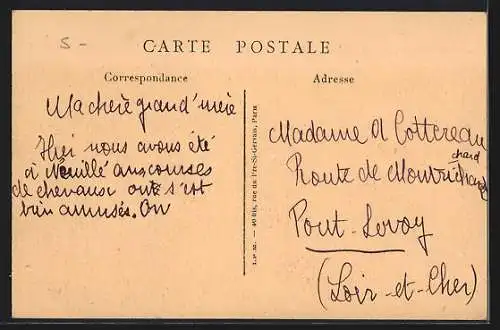 5-
CARTE POSTALE
Correspondance
Ma chere grand'mère
Hier nous avons été
à Neuillé aux courses
de chevaux on s'est
bien amusés. On
Adresse
Madame A Cottereau
chard
Route de Montrichard
Pont-Levoy
(Loir-et-Cher)
40 bis, rue du Pré-St-Gervais, Paris